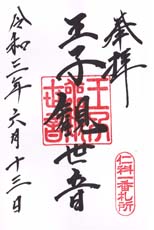 奉拝
仁科一番札所
王子観世音
令和三年六月十三日